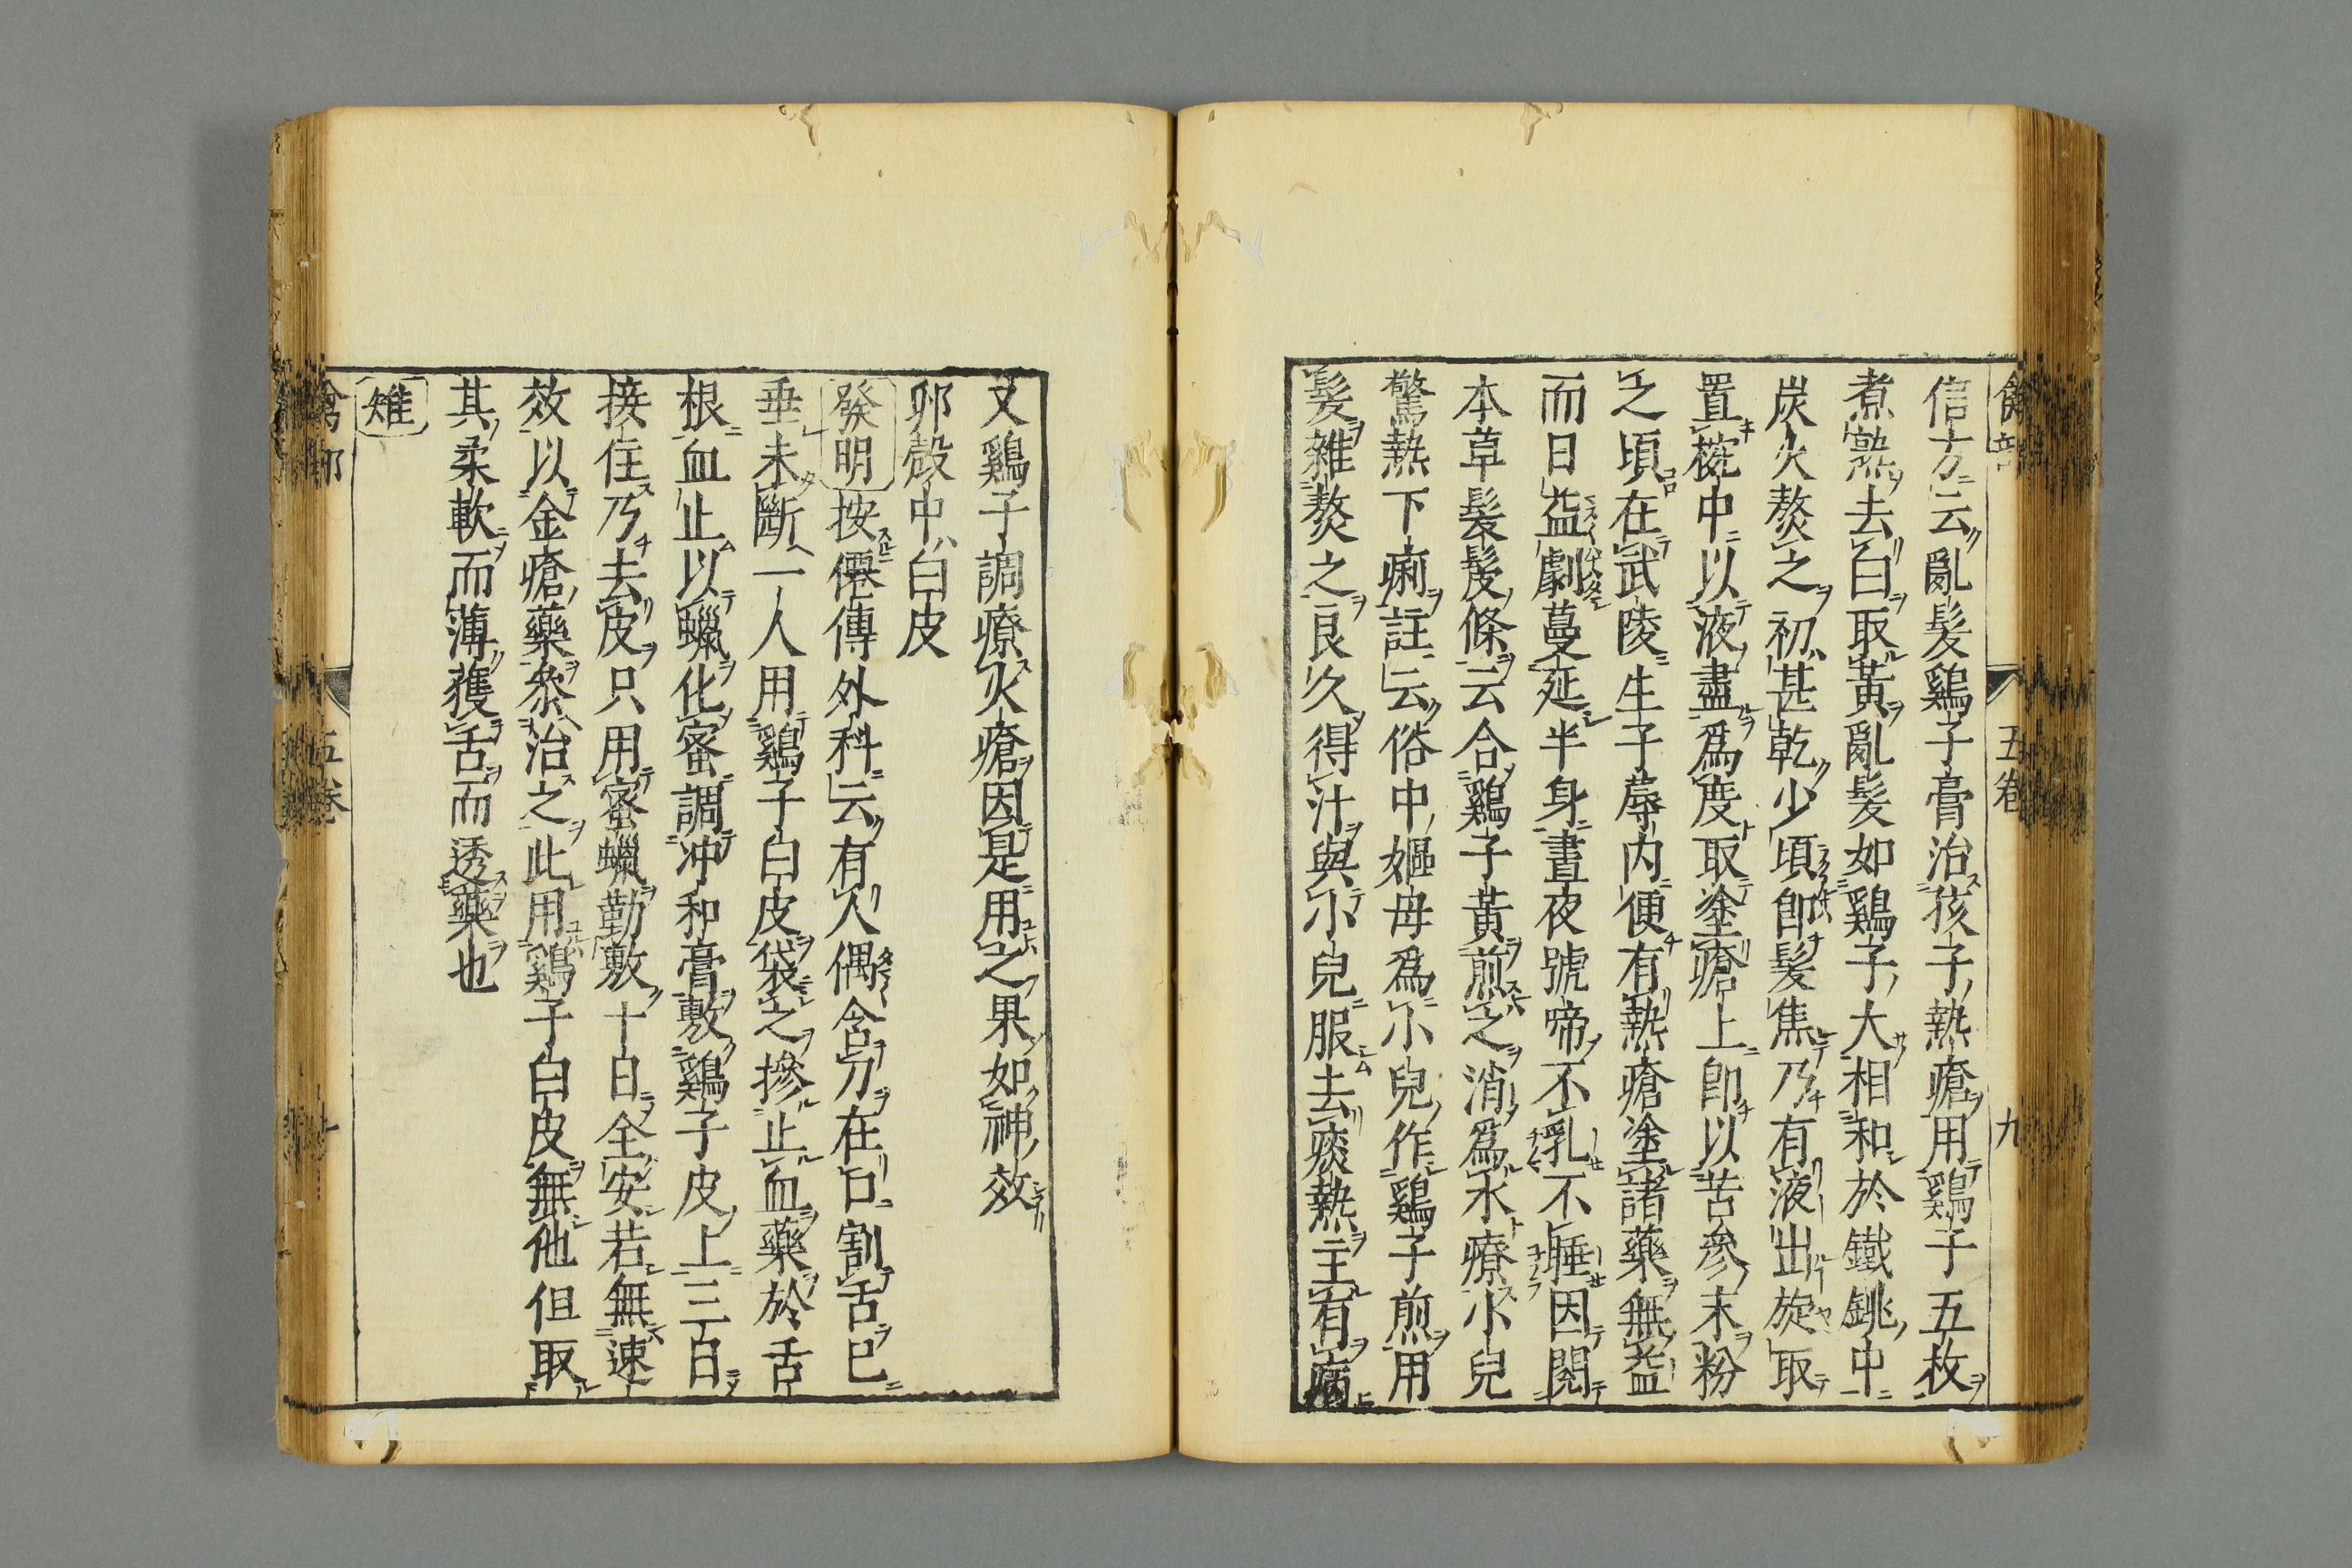 信方云亂髮鷄子膏治孩子熱瘡用鷄子五枚
煮熟去白取黃亂髮如鷄子大相和於鐵銚中
炭火熬之初甚乾少頃即髮焦乃有液出旋取
置椀中以液盡爲度取塗瘡上即以苦參末粉
之頃在武陵生子蓐内便有熱瘡塗諸藥無益
而日益劇蔓延半身晝夜號啼不乳不睡因閱
本草髮髲條云合鷄子黃煎之消爲水療小兒
驚熱下痢註云俗中嫗母爲小兒作鷄子煎用
髮雜熬之良久得汁與小兒服去痰熱主百病
五卷
九
又鷄子調療火瘡因是用之果如神效
卵殼中白皮
發明 按僊傳外科云有人偶含刀在口割舌已
垂未斷一人用鷄子白皮袋之摻止血藥於舌
根血止以蠟化蜜調冲和膏敷鷄子皮上三日
接住乃去皮只用蜜蠟勒敷十日全安若無速
效以金瘡藥參治之此用鷄子白皮無他但取
其柔軟而薄護舌而透藥也
雉
五卷